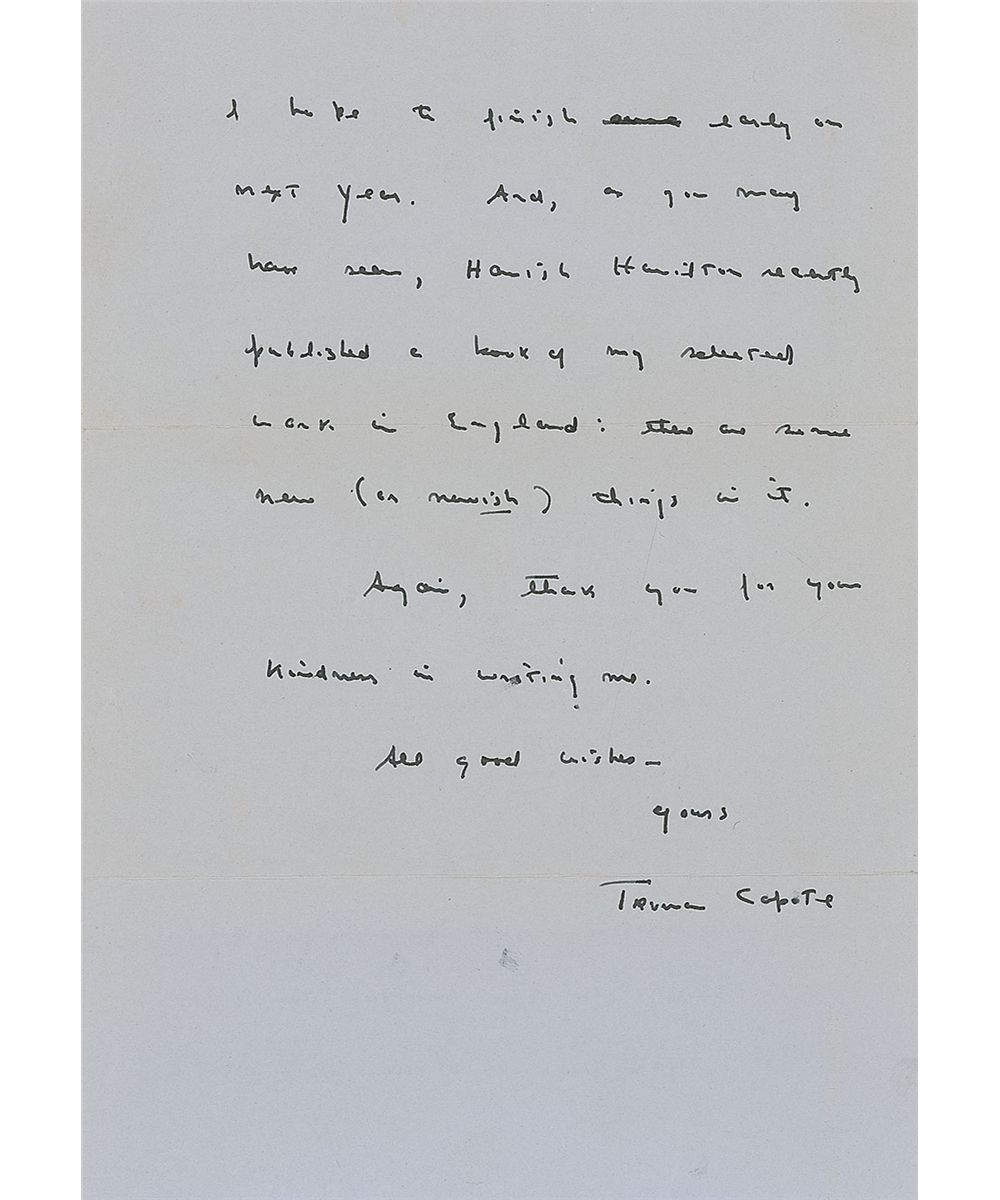 I hope to finish early on
next year. And, as you may
have seen, Hamish Hamilton recently
published a book of my selected
work in England: there are some
new (or newish) things in it.
Again, thank you for your
kindness in writing me.
All good wishes—
yours
Truman Capote